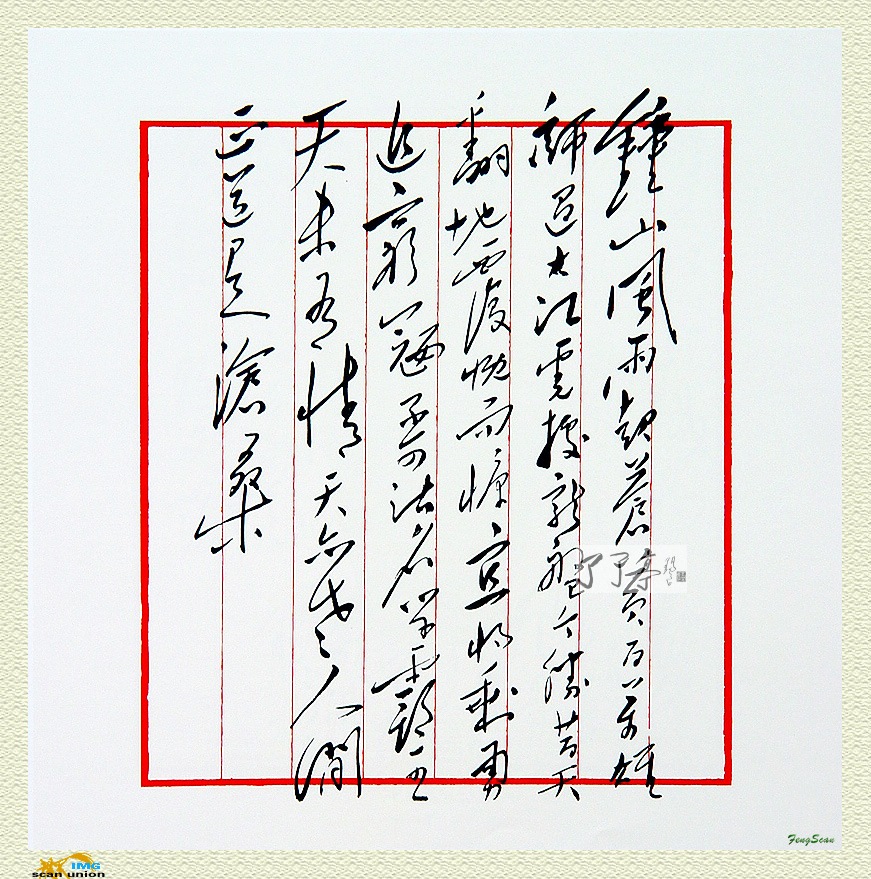 鐘山風雨起蒼黃百萬雄
師過大江虎據龍盤今勝昔天
翻地覆慨而慷宜將剩勇
追窮寇不可沽名學霸王
天若有情天亦老人間
正道是滄桑
FengScan
IMG
scan union